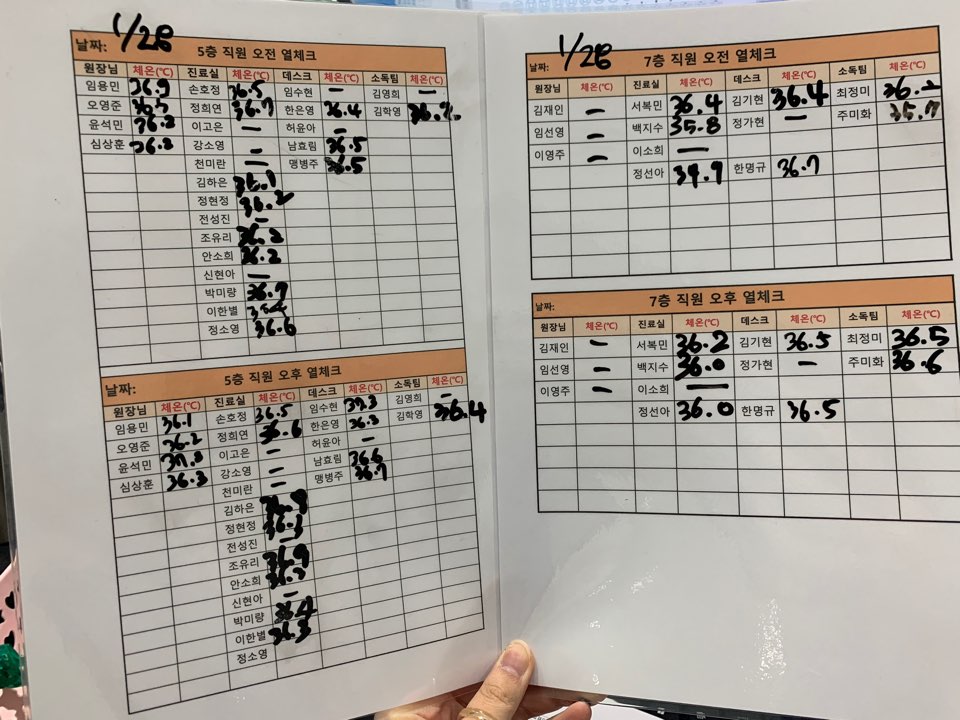 날짜: 1/28 5층 직원 오전 열체크
원장님 체온(℃) 진료실 체온(℃) 데스크 체온(℃) 소독팀 체온(℃)
임용민 36.9 손호정 36.5 임수현 — 김영희 —
오영준 36.5 정희연 36.7 한은영 36.4 김학영
윤석민 36.3 이고은 — 허윤아 —
심상훈 36.2 강소영 — 남효림 36.5
천미란 — 맹병주 36.5
김하은
정현정 36.2
전성진 —
조유리 36.2
안소희 36.2
신현아 —
박미량 36.9
이한별
정소영 36.6
날짜: 5층 직원 오후 열체크
원장님 체온(℃) 진료실 체온(℃) 데스크 체온(℃) 소독팀 체온(℃)
임용민 36.1 손호정 36.5 임수현 김영희 —
오영준 36.2 정희연 36.6 한은영 36.3 김학영 36.4
윤석민 이고은 — 허윤아 —
심상훈 36.3 강소영 — 남효림 36.6
천미란 — 맹병주 36.7
김하은
정현정 36.3
전성진 —
조유리 36.9
안소희 36.7
신현아 —
박미량 36.4
이한별 36.3
정소영
날짜: 1/28 7층 직원 오전 열체크
원장님 체온(℃) 진료실 체온(℃) 데스크 체온(℃) 소독팀 체온(℃)
김재인 — 서복민 36.4 김기현 36.4 최정미 36.2
임선영 — 백지수 35.8 정가현 — 주미화 35.7
이영주 — 이소희 —
정선아 한명규 36.7
날짜: 7층 직원 오후 열체크
원장님 체온(℃) 진료실 체온(℃) 데스크 체온(℃) 소독팀 체온(℃)
김재인 — 서복민 36.2 김기현 36.5 최정미 36.5
임선영 — 백지수 36.0 정가현 — 주미화 36.6
이영주 — 이소희 —
정선아 36.0 한명규 36.5